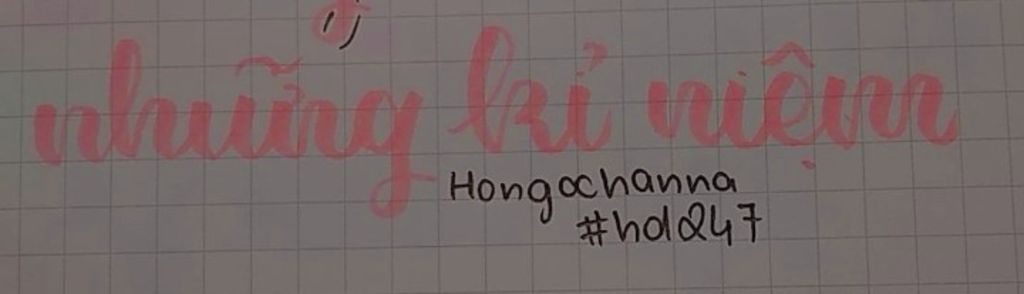 những kỉ niệm
Hongochanna
#hd247